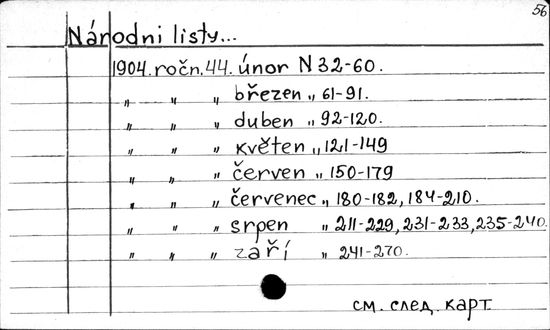 56
Národni listy...
1904. ročn. 44. únor N 32-60.
" " " březen " 61-91.
" " " duben " 92-120.
" " " květen " 121-149
" " " červen " 150-179
" " " červenec " 180-182, 184-210.
" " " srpen " 211-229, 231-233, 235-240.
" " " září " 241-270.
см. след. карт.